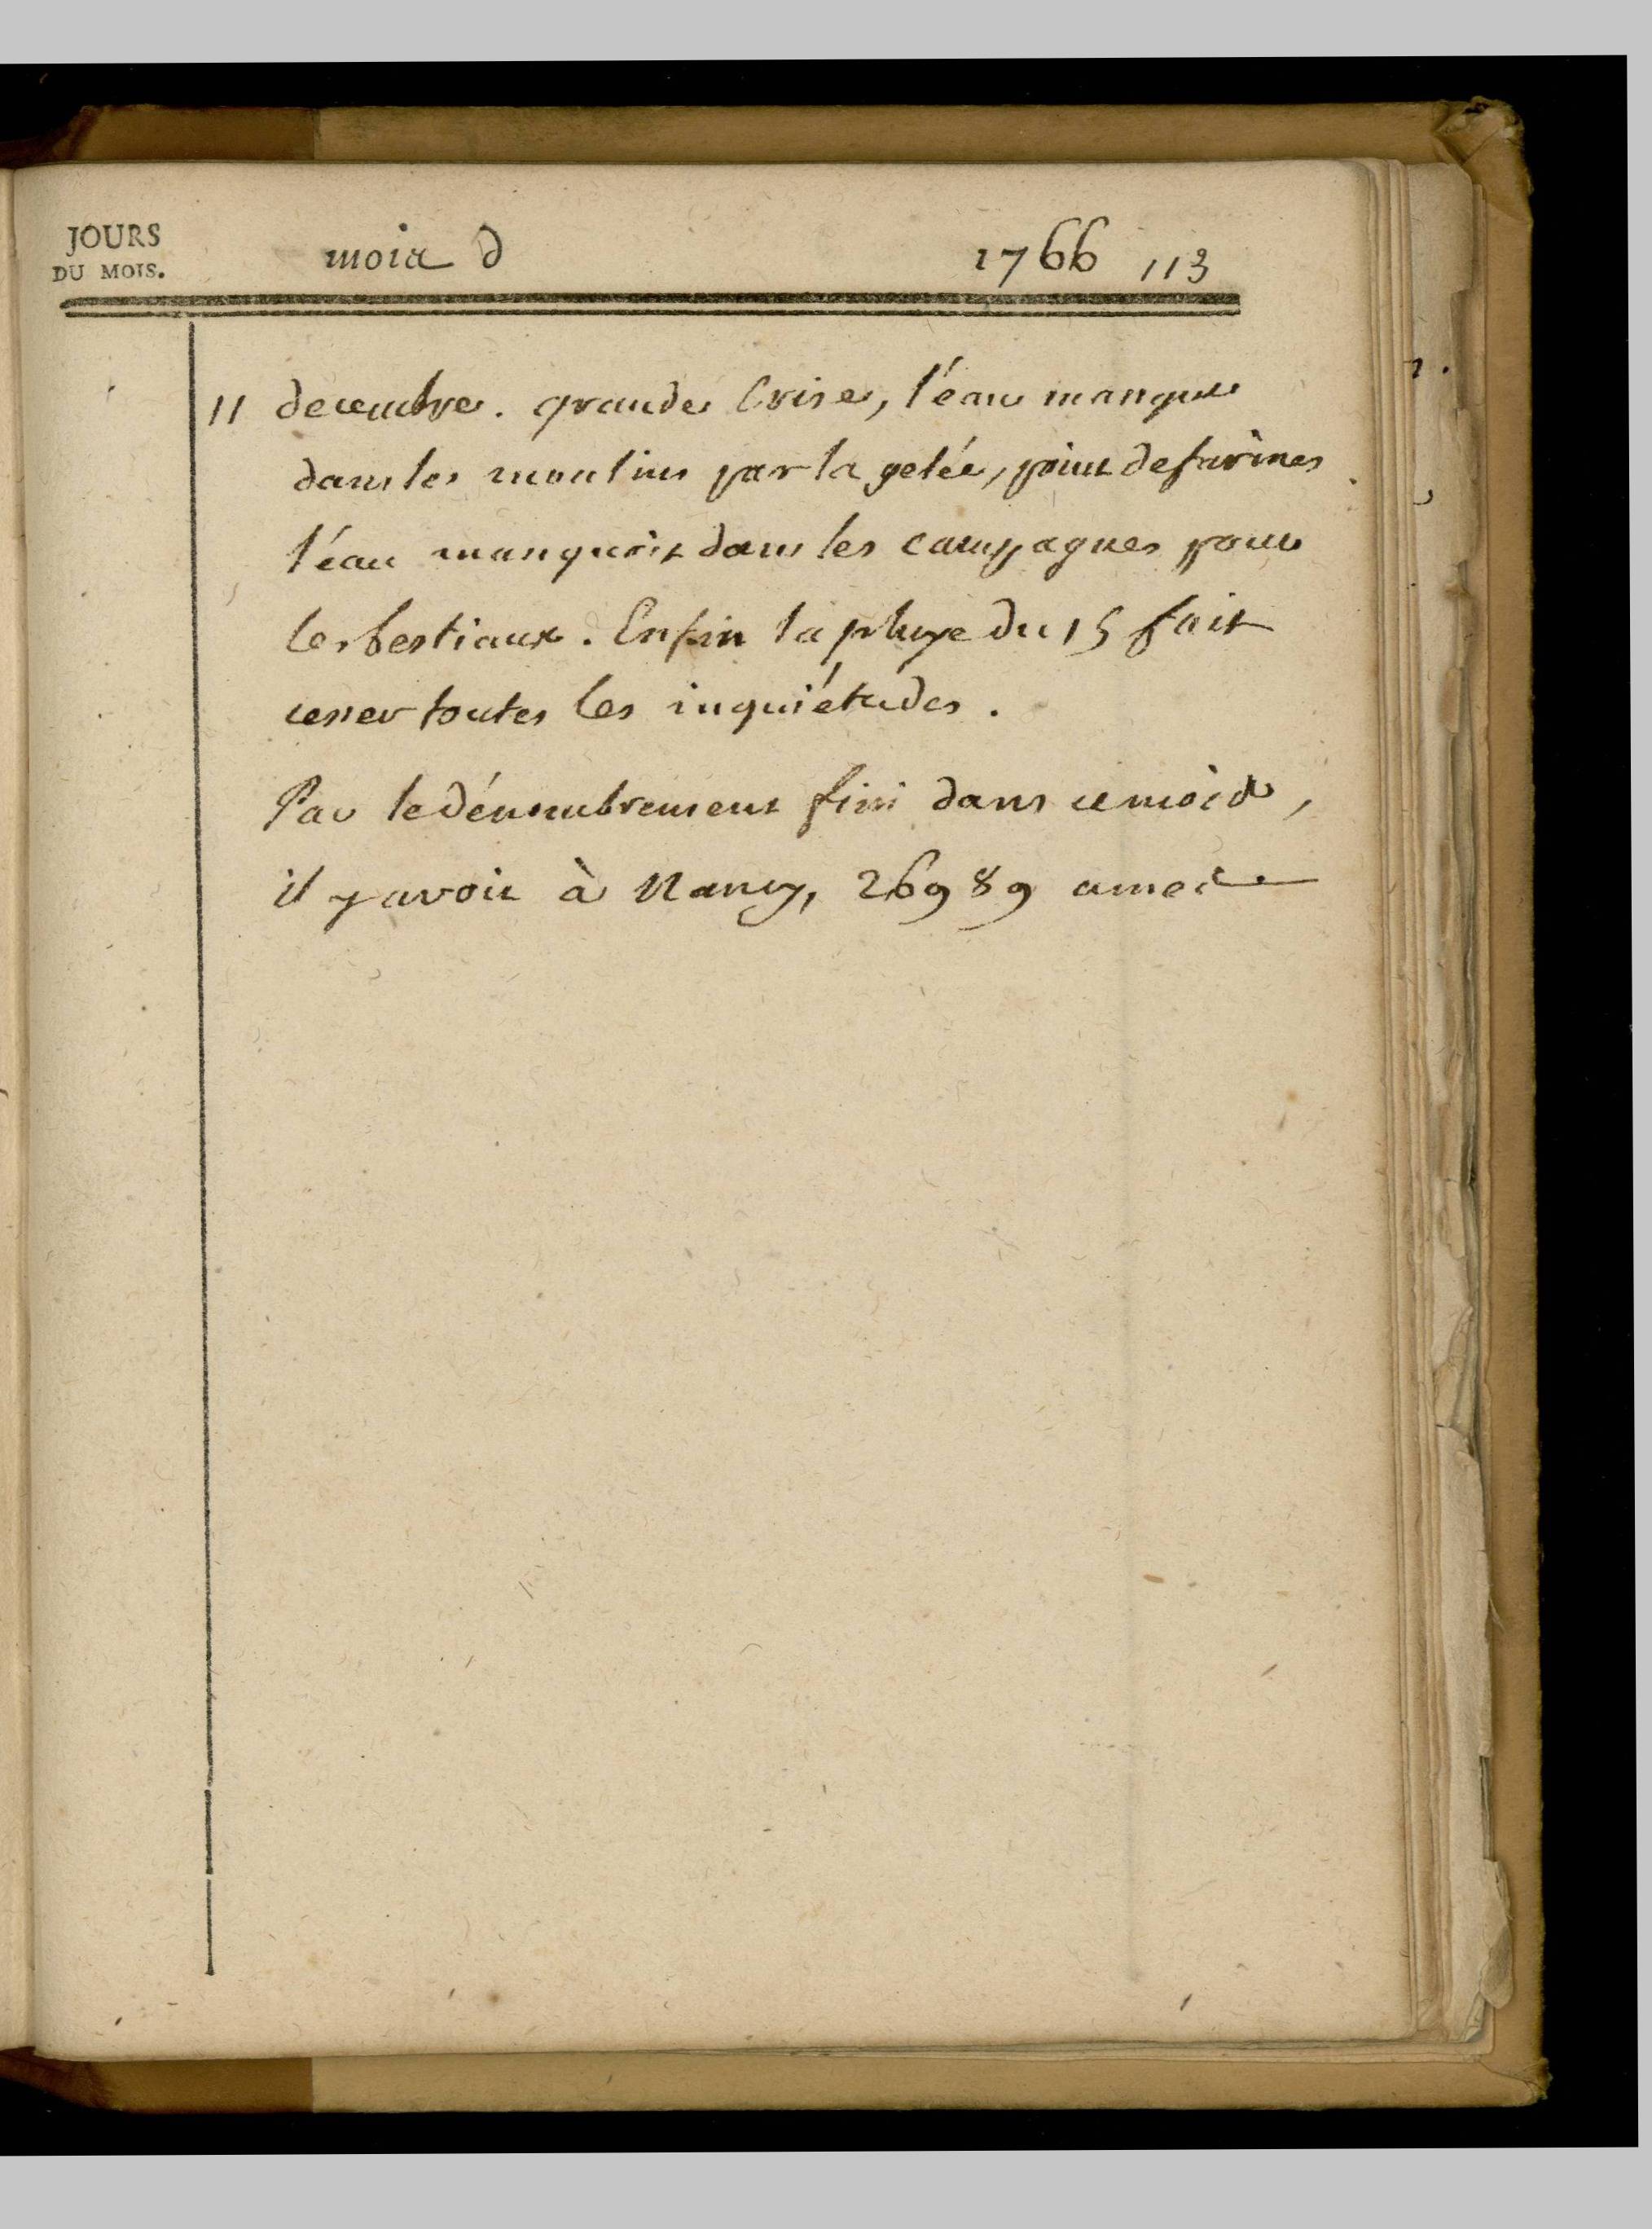 JOURS
DU MOIS.
mois d 1766 113
11 decembre. grande Crise, l'eau manque
dans les moulins par la gelée, point de farines
l'éau manquoit dans les campagnes pour
les bestiaux. Enfin la pluye du 15 fait
cesser toutes les inquiétudes.
Par le dénombrement fini dans ce mois,
il y avoit à Nancy, 26989 ames